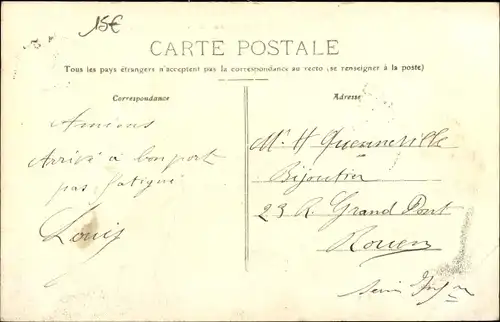 15€
CARTE POSTALE
Tous les pays étrangers n'acceptent pas la correspondance au recto (se renseigner à la poste)
Correspondance
Amiens
Arrivé à bon port
pas fatigué
Louis
Adresse
Mr H Quenneville
Bijoutier
23 R. Grand Pont
Rouen
Seine Infre